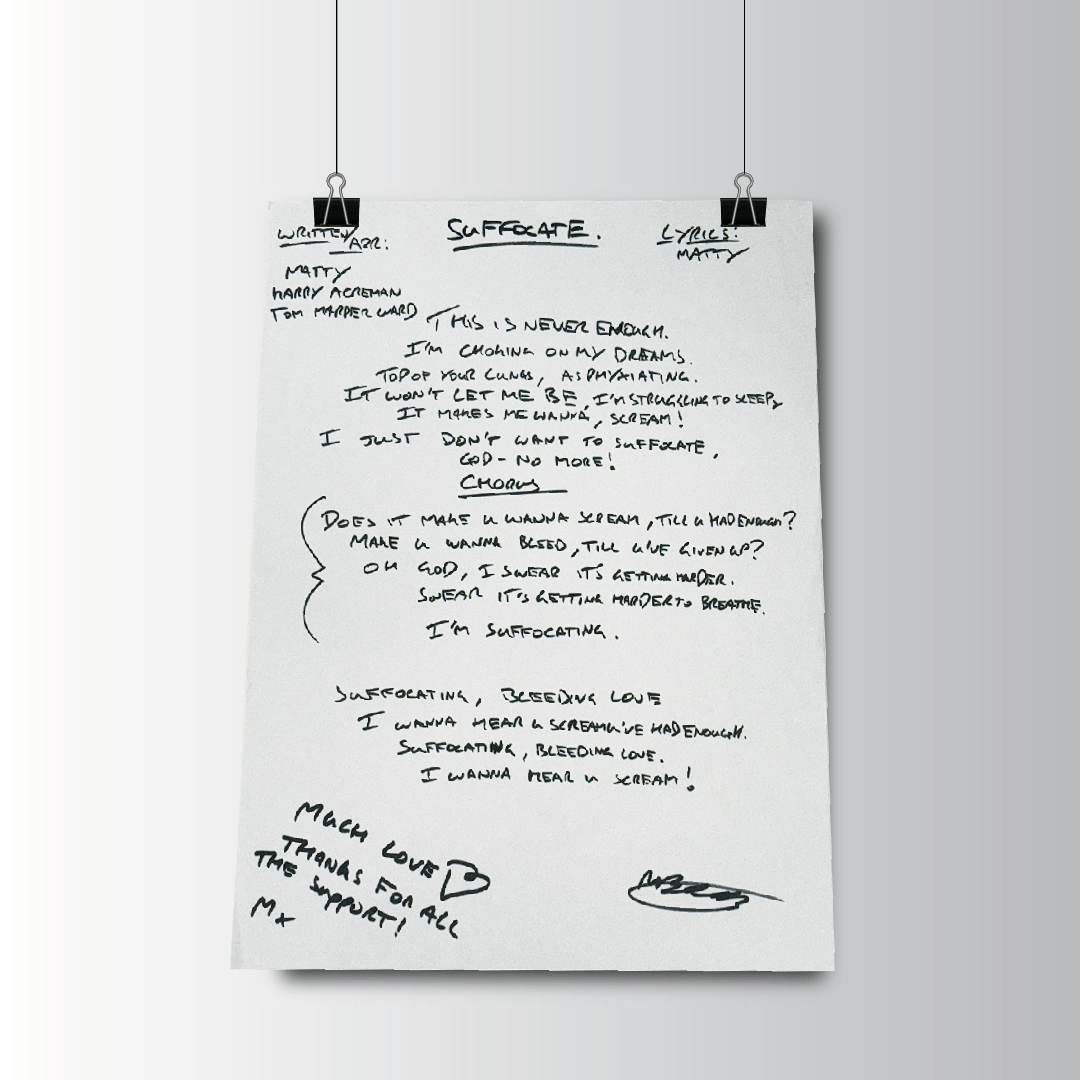 WRITTEN/ARR:
SUFFOCATE.
LYRICS:
MATTY
MATTY
HARRY ACREMAN
TOM MARPER WARD
THIS IS NEVER ENOUGH.
I'M CHOKING ON MY DREAMS.
TOP OF YOUR LUNGS, ASPHYXIATING.
IT WON'T LET ME BE, I'M STRUGGLING TO SLEEP,
IT MAKES ME WANNA, SCREAM!
I JUST DON'T WANT TO SUFFOCATE,
GOD - NO MORE!
CHORUS
DOES IT MAKE U WANNA SCREAM, TILL U HAD ENOUGH?
MAKE U WANNA BLEED, TILL U'VE GIVEN UP?
OH GOD, I SWEAR IT'S GETTING HARDER.
SWEAR IT'S GETTING HARDER TO BREATHE.
I'M SUFFOCATING.
SUFFOCATING, BLEEDING LOVE
I WANNA HEAR U SCREAM U'VE HAD ENOUGH.
SUFFOCATING, BLEEDING LOVE.
I WANNA HEAR U SCREAM!
MUCH LOVE
THANKS FOR ALL
THE SUPPORT!
MX